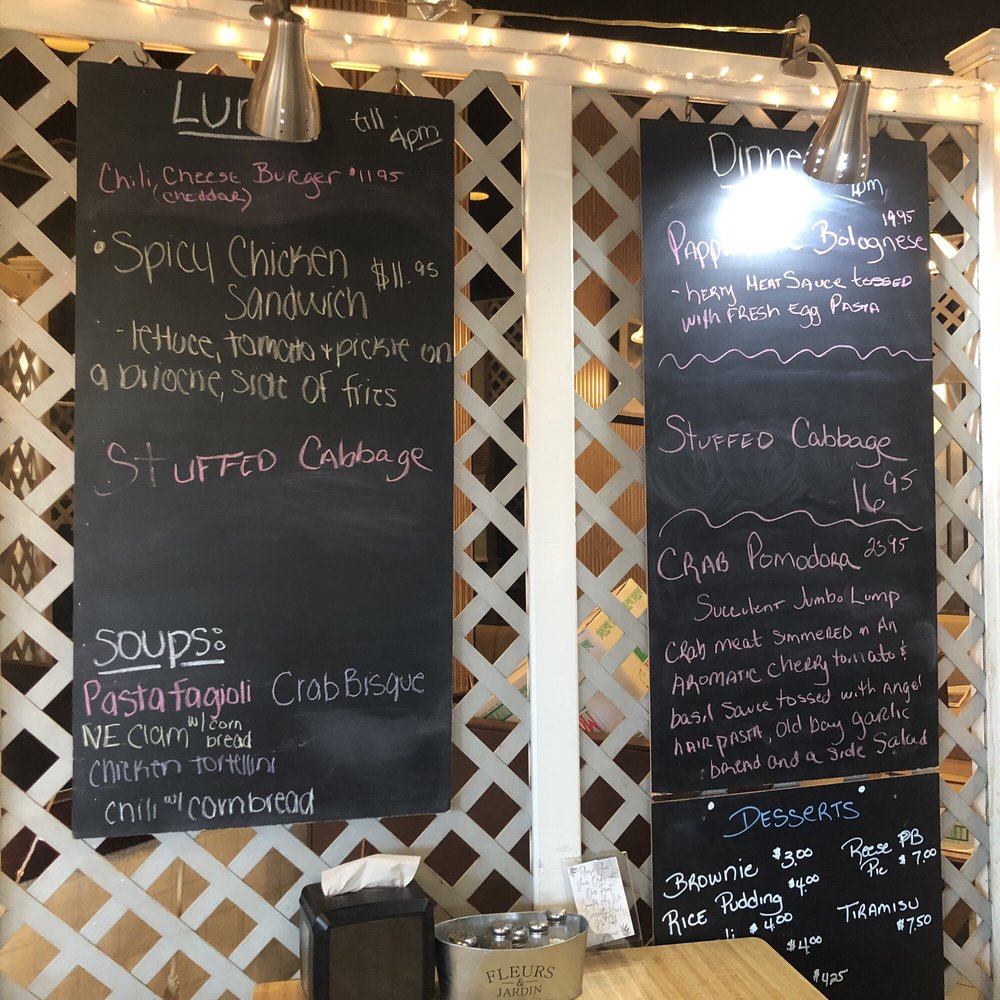 till
4pm
Chili Cheese Burger $11.95
(cheddar)
Spicy Chicken $11.95
Sandwich
- lettuce, tomato + pickle on
a brioche, side of fries
Stuffed Cabbage
Soups:
Pasta Fagioli Crab Bisque
NE Clam w/ corn
bread
Chicken tortellini
chili w/ cornbread
19.95
Bolognese
- herty Meat Sauce tossed
with Fresh Egg Pasta
Stuffed Cabbage
16.95
Crab Pomodora 23.95
Succulent Jumbo Lump
Crab meat simmered in An
Aromatic cherry tomato &
basil sauce tossed with angel
hair pasta, old bay garlic
bread and a side salad
Desserts
Brownie $3.00
Rice Pudding $4.00
$4.00
$4.00
$4.25
Reese PB
Pie $7.00
Tiramisu
$7.50
FLEURS
&
JARDIN